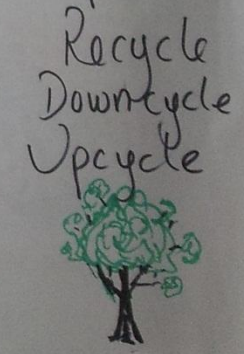 Recycle
Downcycle
Upcycle